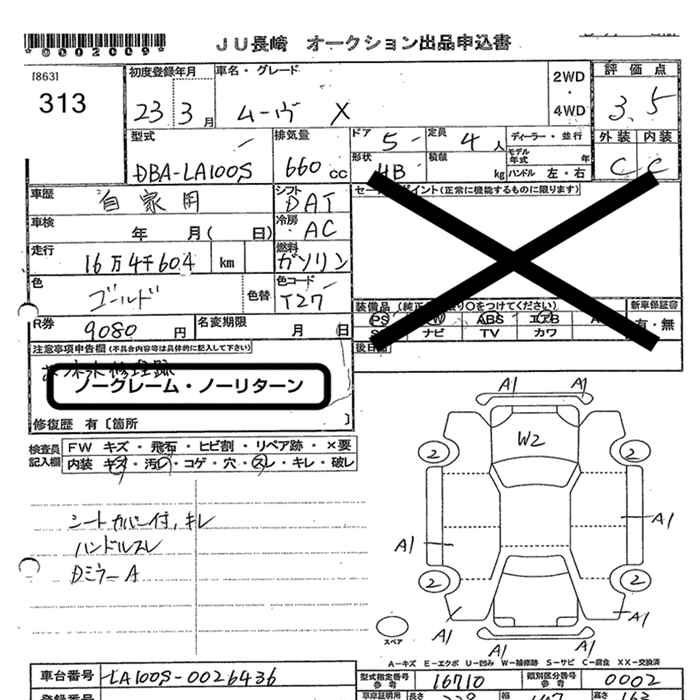 *0002009*
JU長崎 オークション出品申込書
[863]
313
初度登録年月
23 3月
車名・グレード
ムーヴ X
2WD
・
4WD
評価点
3.5
型式
DBA-LA100S
排気量
660cc
ドア 5
定員 4人
ディーラー・並行
形状 HB
積載 kg
モデル年式 年
ハンドル 左・右
外装 内装
C C
車歴 自家用
シフト DAT
車検 年 月( 日)
冷房 AC
走行 16万4千604 km
燃料 ガソリン
色 ゴールド
色替
色コード T27
R券 9080円
名変期限 月 (日
イント(正常に機能するものに限ります)
装備品
○をつけてください)
新車保証書
有・無
PS
ABS
エアB
ナビ TV カワ
後日
注意事項申告欄(不具合内容等は具体的に記入して下さい)
ノークレーム・ノーリターン
修復歴 有〔箇所 〕
検査員記入欄
FW キズ・飛石・ヒビ割・リペア跡・×要
内装 キズ・汚レ・コゲ・穴・スレ・キレ・破レ
シートカバー付、キレ
ハンドルスレ
DミラーA
A1 A1
W2
2 2
A1 A1
2 2
A1 A1
A1 A1
スペア
A-キズ E-エクボ U-凹み W-補修跡 S-サビ C-腐食 XX-交換済
車台番号 LA100S-0026436
型式指定番号 16710
類別区分番号 0002
参考
長さ
幅
高さ